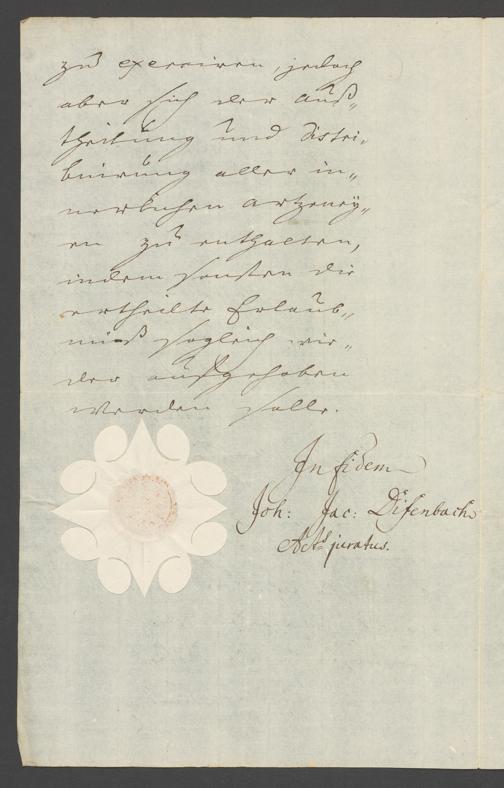 zu exerciren, jedoch
aber sich der auß„
theilung und distri„
buirung aller in„
nerlichen artzeney„
en zu enthalten,
indem sonsten die
ertheilte Erlaub„
nuß sogleich wie„
der aufgehoben
werden solle.
In fidem
Joh: Jac: Difenbach
Acts juratus.